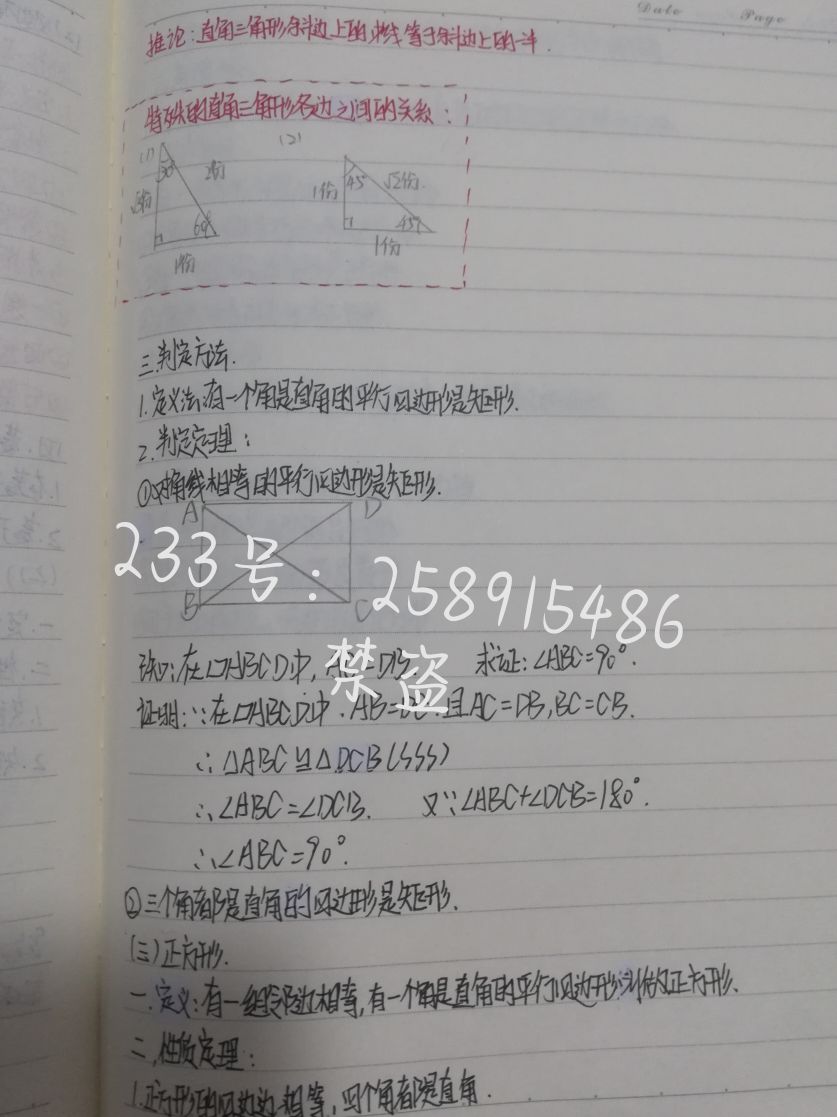 Date Page
推论:直角三角形斜边上的中线等于斜边上的一半.
特殊的直角三角形各边之间的关系:
(1) (2)
30° 2份 45° √2份.
√3份 1份
60° 45°
1份 1份
三.判定方法.
1.定义法:有一个角是直角的平行四边形是矩形.
2.判定定理:
①对角线相等的平行四边形是矩形.
A D
B C
233号:258915486
禁盗
已知:在▱ABCD中, AC=DB. 求证:∠ABC=90°.
证明:∵在▱ABCD中.AB=DC.且AC=DB,BC=CB.
∴△ABC≌△DCB(SSS)
∴∠ABC=∠DCB. 又∵∠ABC+∠DCB=180°.
∴∠ABC=90°.
②三个角都是直角的四边形是矩形.
(三)正方形.
一.定义:有一组邻边相等,有一个角是直角的平行四边形叫做正方形.
二.性质定理:
1.正方形的四边边相等,四个角都是直角.